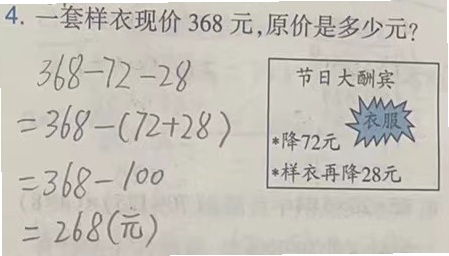 4. 一套样衣现价 368 元,原价是多少元?
368-72-28
=368-(72+28)
=368-100
=268(元)
节日大酬宾
衣服
*降72元
*样衣再降28元